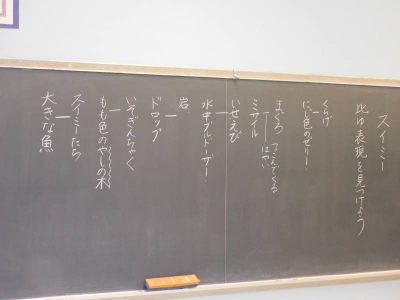 スイミー
比ゆ表現を見つけよう
くらげ
にじ色のゼリー
まぐろ
ミサイル はやい
いせえび
水中ブルドーザー
岩
ドロップ
いそぎんちゃく
もも色のやしの木
スイミーたち
大きな魚